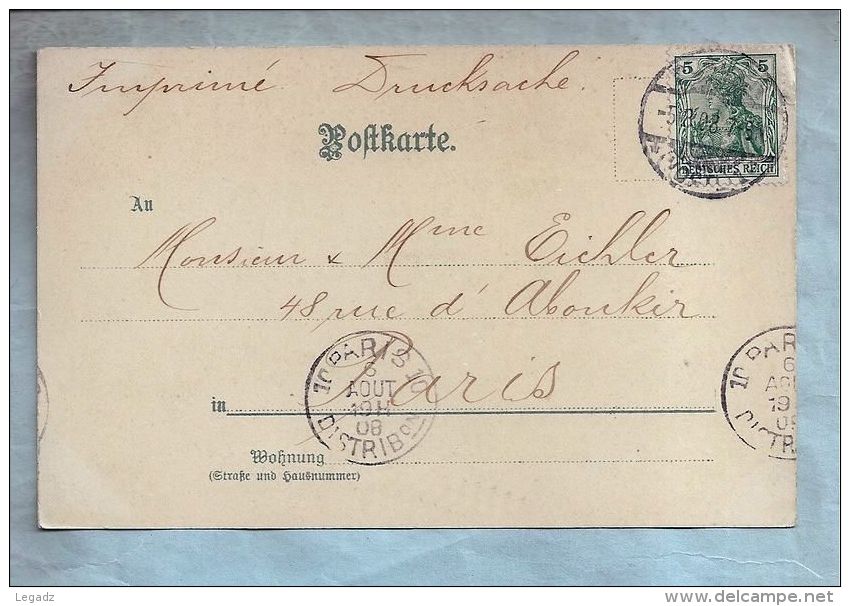 Imprimé Drucksache.
5 5
DEUTSCHES REICH
Postkarte.
An
Monsieur & Mme Eichler
48 rue d'Aboukir
Paris
in
10 PARIS 10
6
AOUT
19 H
08
DISTRIBON
10 PARI
6
AOU
19
08
DISTRI
Wohnung
(Straße und Hausnummer)
Legadz
delcampe.net